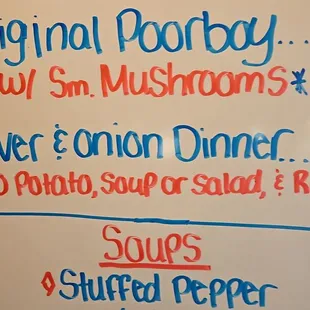 iginal Poorboy...
w/ Sm. Mushrooms*
ver & onion Dinner...
Potato, soup or salad, & R
Soups
◊ Stuffed Pepper